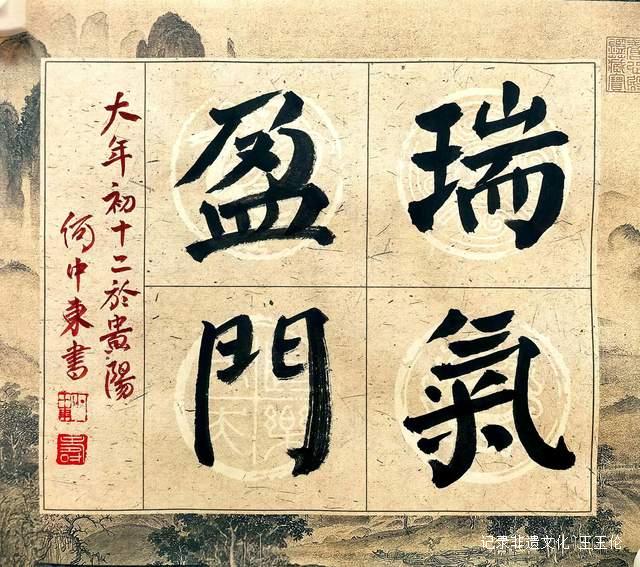 瑞氣
盈門
大年初十二於貴陽
何中東書
记录非遗文化 王玉伦